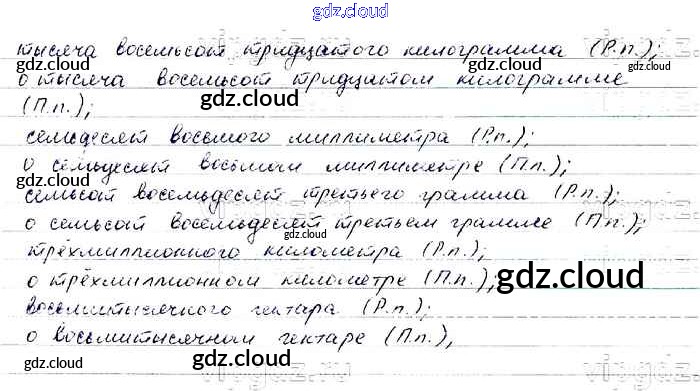 gdz.cloud
тысяча восемьсот тридцатого килограмма (Р.п.);
о тысяча восемьсот тридцатом килограмме
(П.п.);
семьдесят восьмого миллиметра (Р.п.);
о семьдесят восьмом миллиметре (П.п.);
семьсот восемьдесят третьего грамма (Р.п.);
о семьсот восемьдесят третьем грамме (П.п.);
трёхмиллионного километра (Р.п.);
о трёхмиллионном километре (П.п.);
восьмитысячного гектара (Р.п.);
о восьмитысячном гектаре (П.п.),
gdz.cloud
gdz.cloud
gdz.cloud
gdz.cloud
gdz.cloud
gdz.cloud
gdz.cloud
gdz.cloud
gdz.cloud
gdz.cloud
gdz.cloud
gdz.cloud